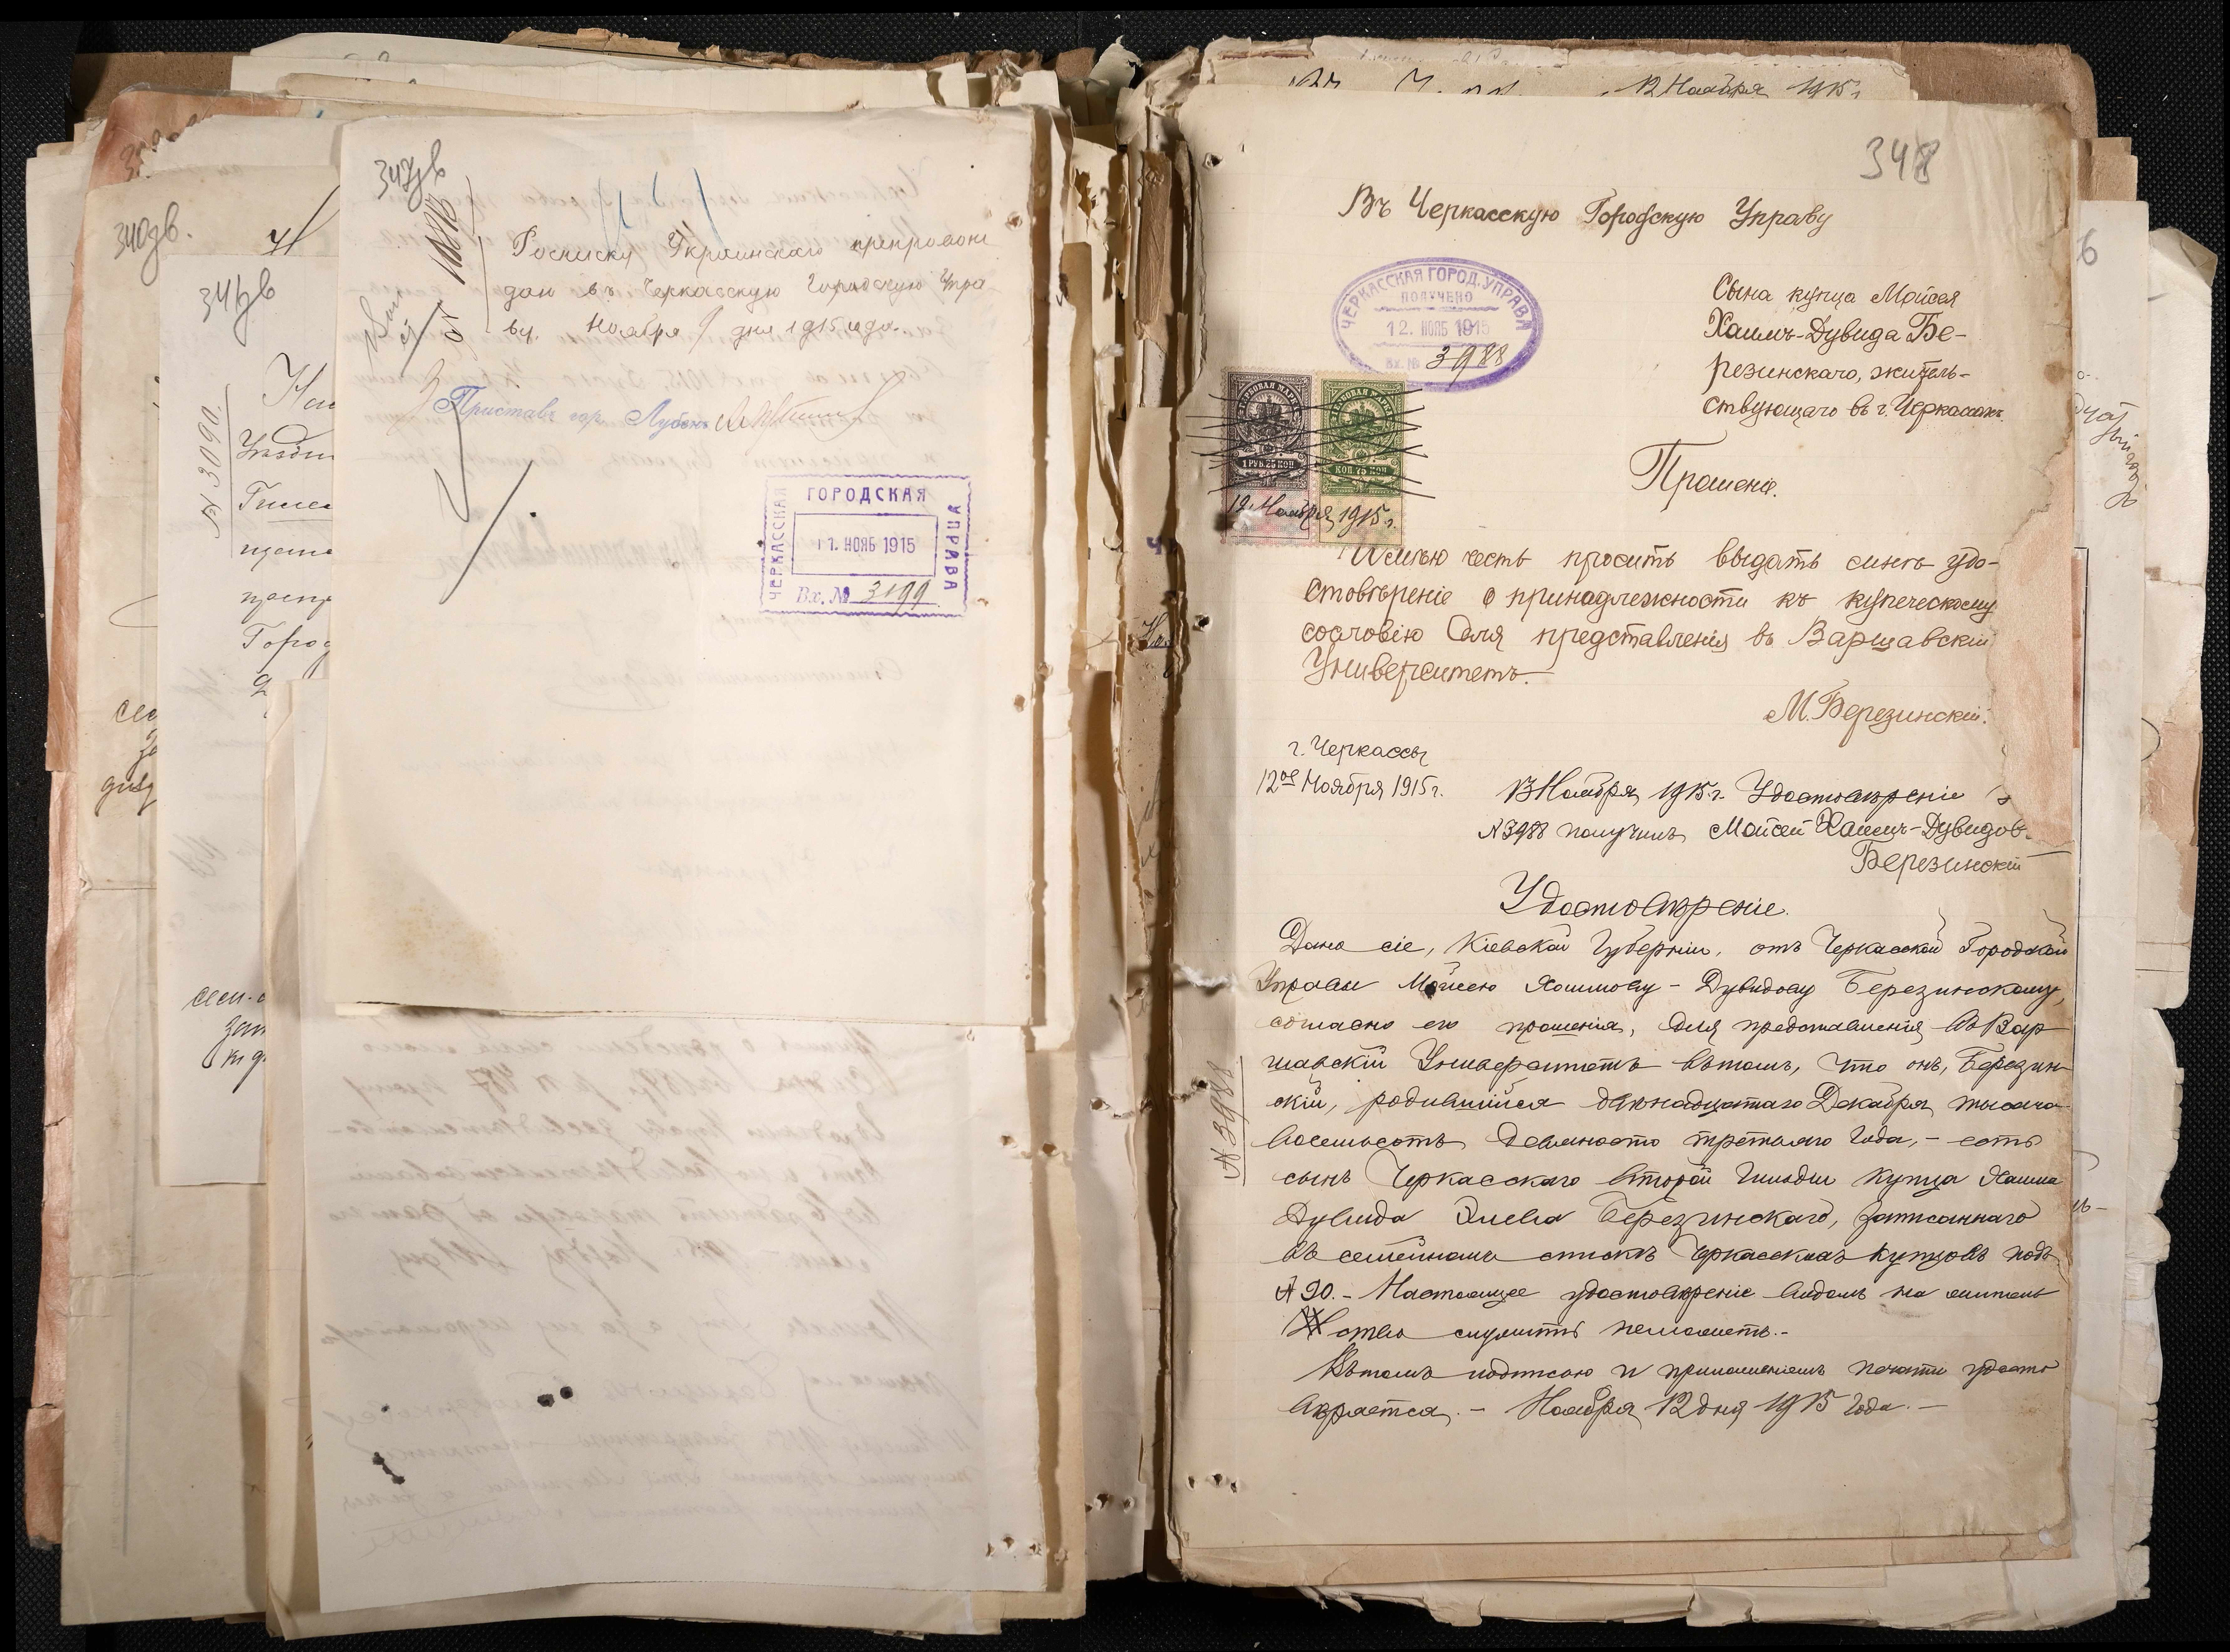 340зв.
341зв
№ 3090.
Город
347зв
Росписку Украинскаго препровож
даю въ Черкасскую Городскую Упра
ву. Ноября 9 дня 1915 года.
Приставъ гор. Лубенъ
ЧЕРКАССКАЯ ГОРОДСКАЯ УПРАВА
11. НОЯБ 1915
Вх. № 3199
12 Ноября 1915 г.
348
Въ Черкасскую Городскую Управу
ЧЕРКАССКАЯ ГОРОД. УПРАВА
ПОЛУЧЕНО
12. НОЯБ 1915
Вх. № 3988
Сына купца Мойсея
Хаимъ-Дувида Бе-
резинскаго, житель-
ствующаго въ г. Черкассахъ.
ГЕРБОВАЯ МАРКА
1 РУБ. 25 КОП
ГЕРБОВАЯ МАРКА
КОП. 75 КОП
12 Ноября 1915 г.
Прошеніе.
Имѣю честь просить выдать симъ удо-
стовѣреніе о принадлежности къ купеческому
сословію для представленія въ Варшавскій
Университетъ.
М. Березинскій.
г. Черкассы
12ое Ноября 1915 г.
13 Ноября 1915 г. Удостовѣреніе з
№ 3988 получилъ Мойсей Хаимъ-Дувидов.
Березинскій
Удостовѣреніе.
Дано сіе, Кіевской Губерніи, отъ Черкасской Городской
Управы Мойсею Хаимову-Дувидову Березинскому,
согласно его прошенія, для представленія въ Вар
шавскій Университетъ въ томъ, что онъ, Березин
скій, родившійся двѣнадцатаго Декабря тысяча
восемьсотъ девяносто третьяго года, - есть
сынъ Черкасскаго второй гильдіи купца Хаима
Дувида Элева Березинскаго, записаннаго
въ семейномъ спискѣ Черкасскихъ купцовъ подъ
№ 90. - Настоящее удостовѣреніе видомъ на житель
ство служить не можетъ. -
Въ томъ подписью и приложеніемъ печати удосто
вѣряется. - Ноября 12 дня 1915 года. -
№ 3988